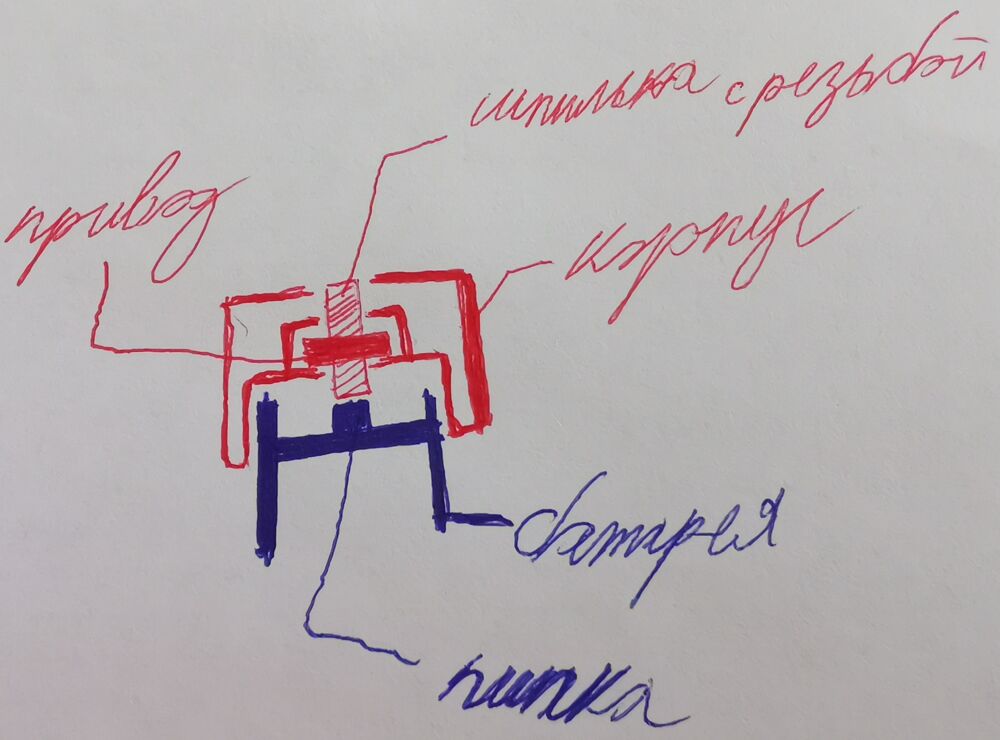 шпилька с резьбой
привод
корпус
батарея
пипка